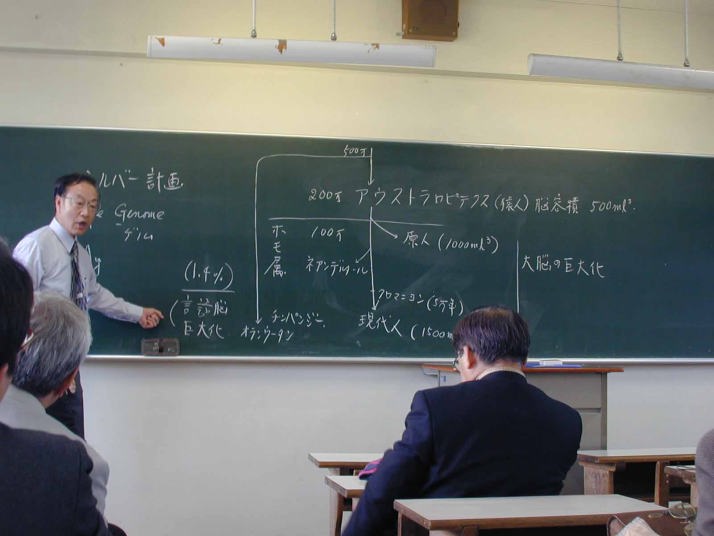 ルバー計画
Genome
ゲノム
(1.4%)
言語脳
巨大化
500万
200万 アウストラロピテクス(猿人)脳容積 500ml³.
ホモ属.
100万
原人(1000ml³)
ネアンデルタール
クロマニヨン(5万年)
チンパンジー.
オランウータン
現代人(1500m
大脳の巨大化